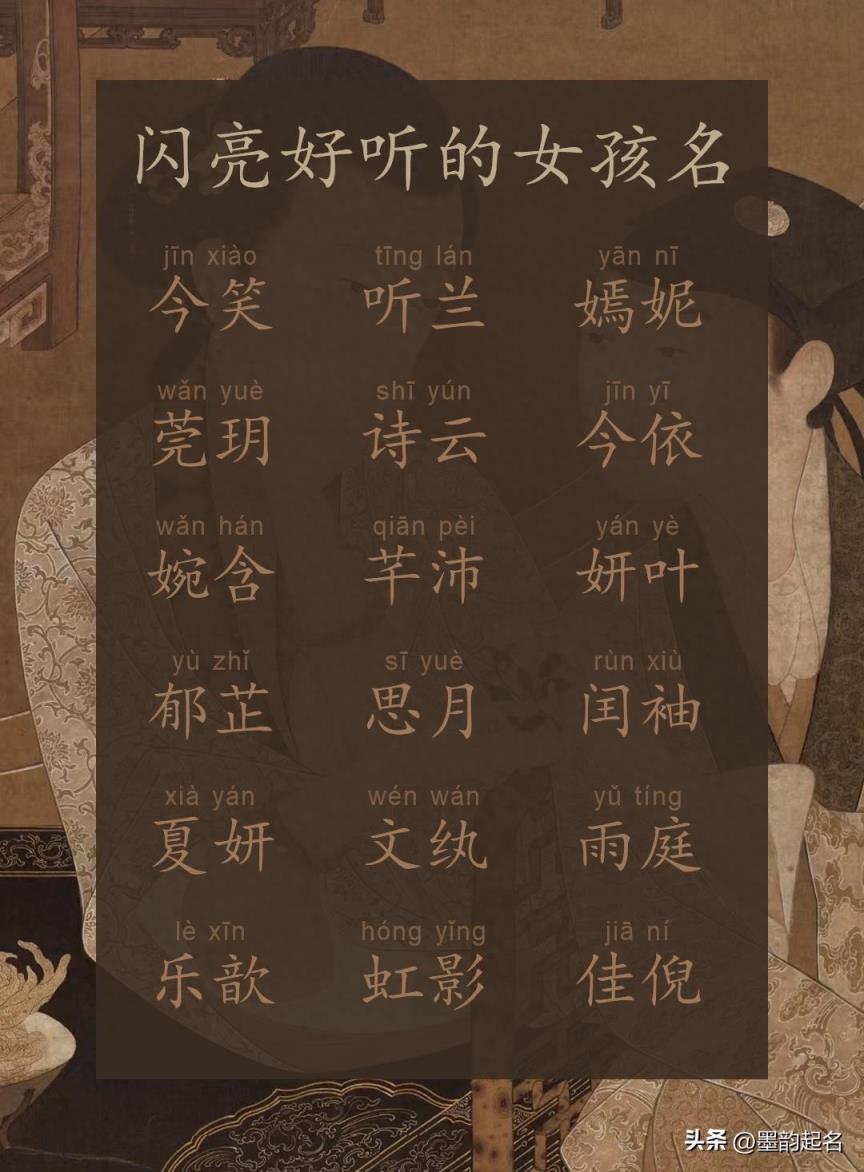 闪亮好听的女孩名
jīn xiào tīng lán yān nī
今笑 听兰 嫣妮
wǎn yuè shī yún jīn yī
莞玥 诗云 今依
wǎn hán qiān pèi yán yè
婉含 芊沛 妍叶
yù zhǐ sī yuè rùn xiù
郁芷 思月 闰袖
xià yán wén wán yǔ tíng
夏妍 文纨 雨庭
lè xīn hóng yǐng jiā ní
乐歆 虹影 佳倪
头条 @墨韵起名